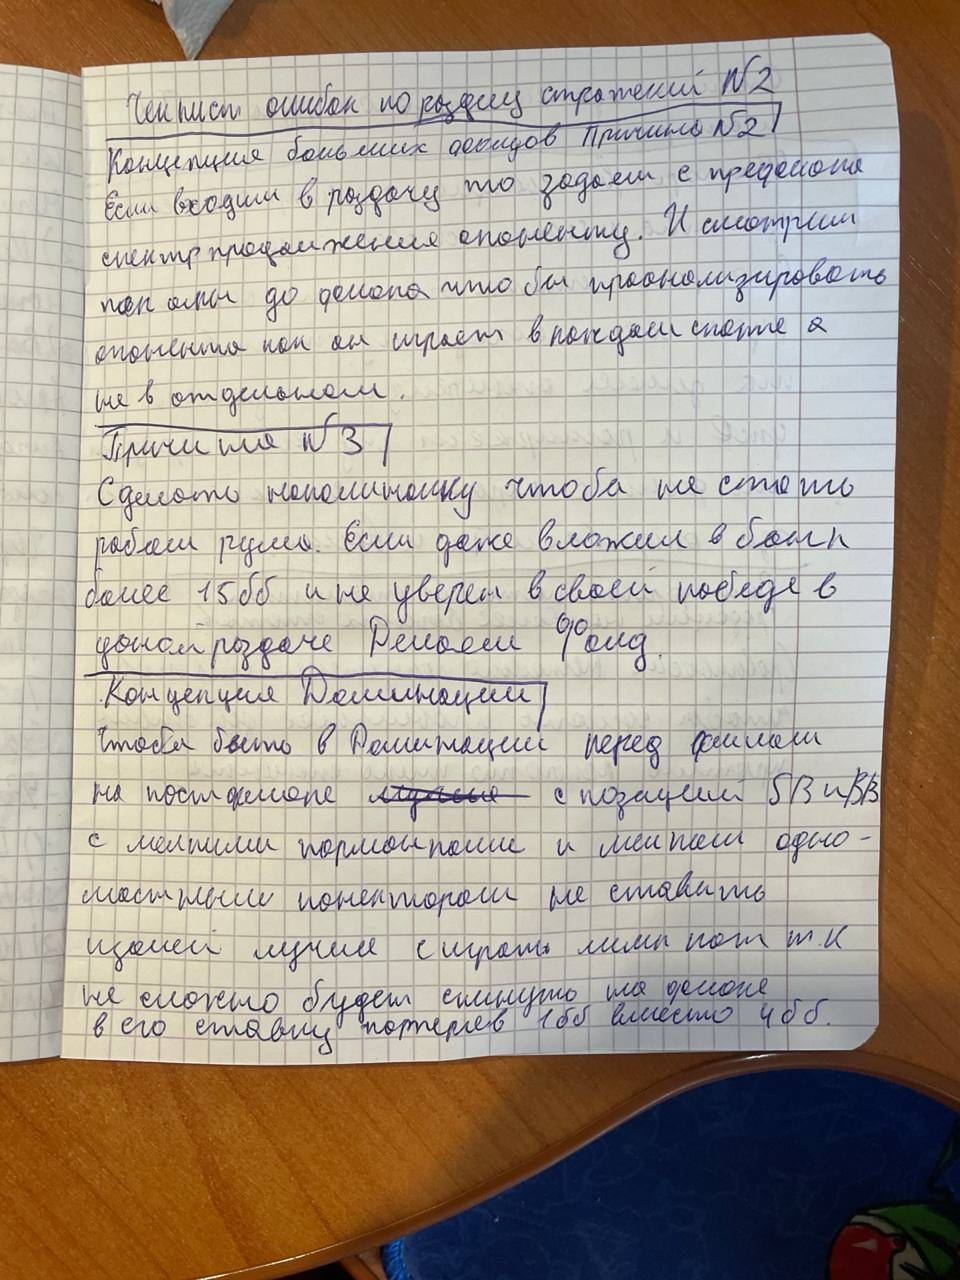 Чек лист ошибок по разделу стратегий N2
Концепция больших блайдов Причина N2
Если входим в раздачу то задаем с префлопа
спектр продолжения опоненту. И смотрим
как он до флопа что бы проанализировать
опонента как он играет в каждом споте а
не в отдельном.
Причина N3
Сделать напоминалку чтоба не стать
рабом рума. Если даже вложил в банк
более 15бб и не уверен в своей победе в
даной раздаче Делаем Фолд.
Концепция Доминации
Чтобы быть в Доминации перед филом
на постфлопе с позиций SB и BB
с мелкими карманками и мелким одно-
мастными конекторами не ставить
изолей лучше сиграть лимп пот т.к
не сложно будет скинуть на флопе
в его ставку потеряв 1бб вместо 4бб.